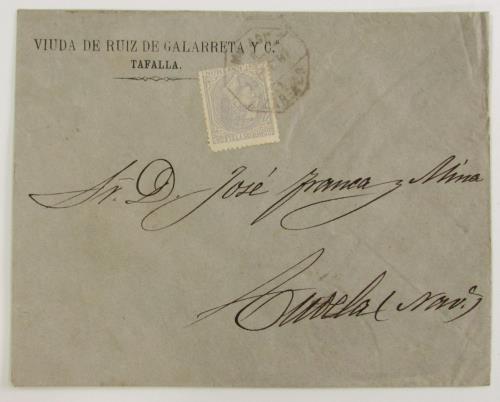 VIUDA DE RUIZ DE GALARRETA Y C.ª
TAFALLA.
Sr. D. José Franca y Mina
Tudela (Nav.ª)